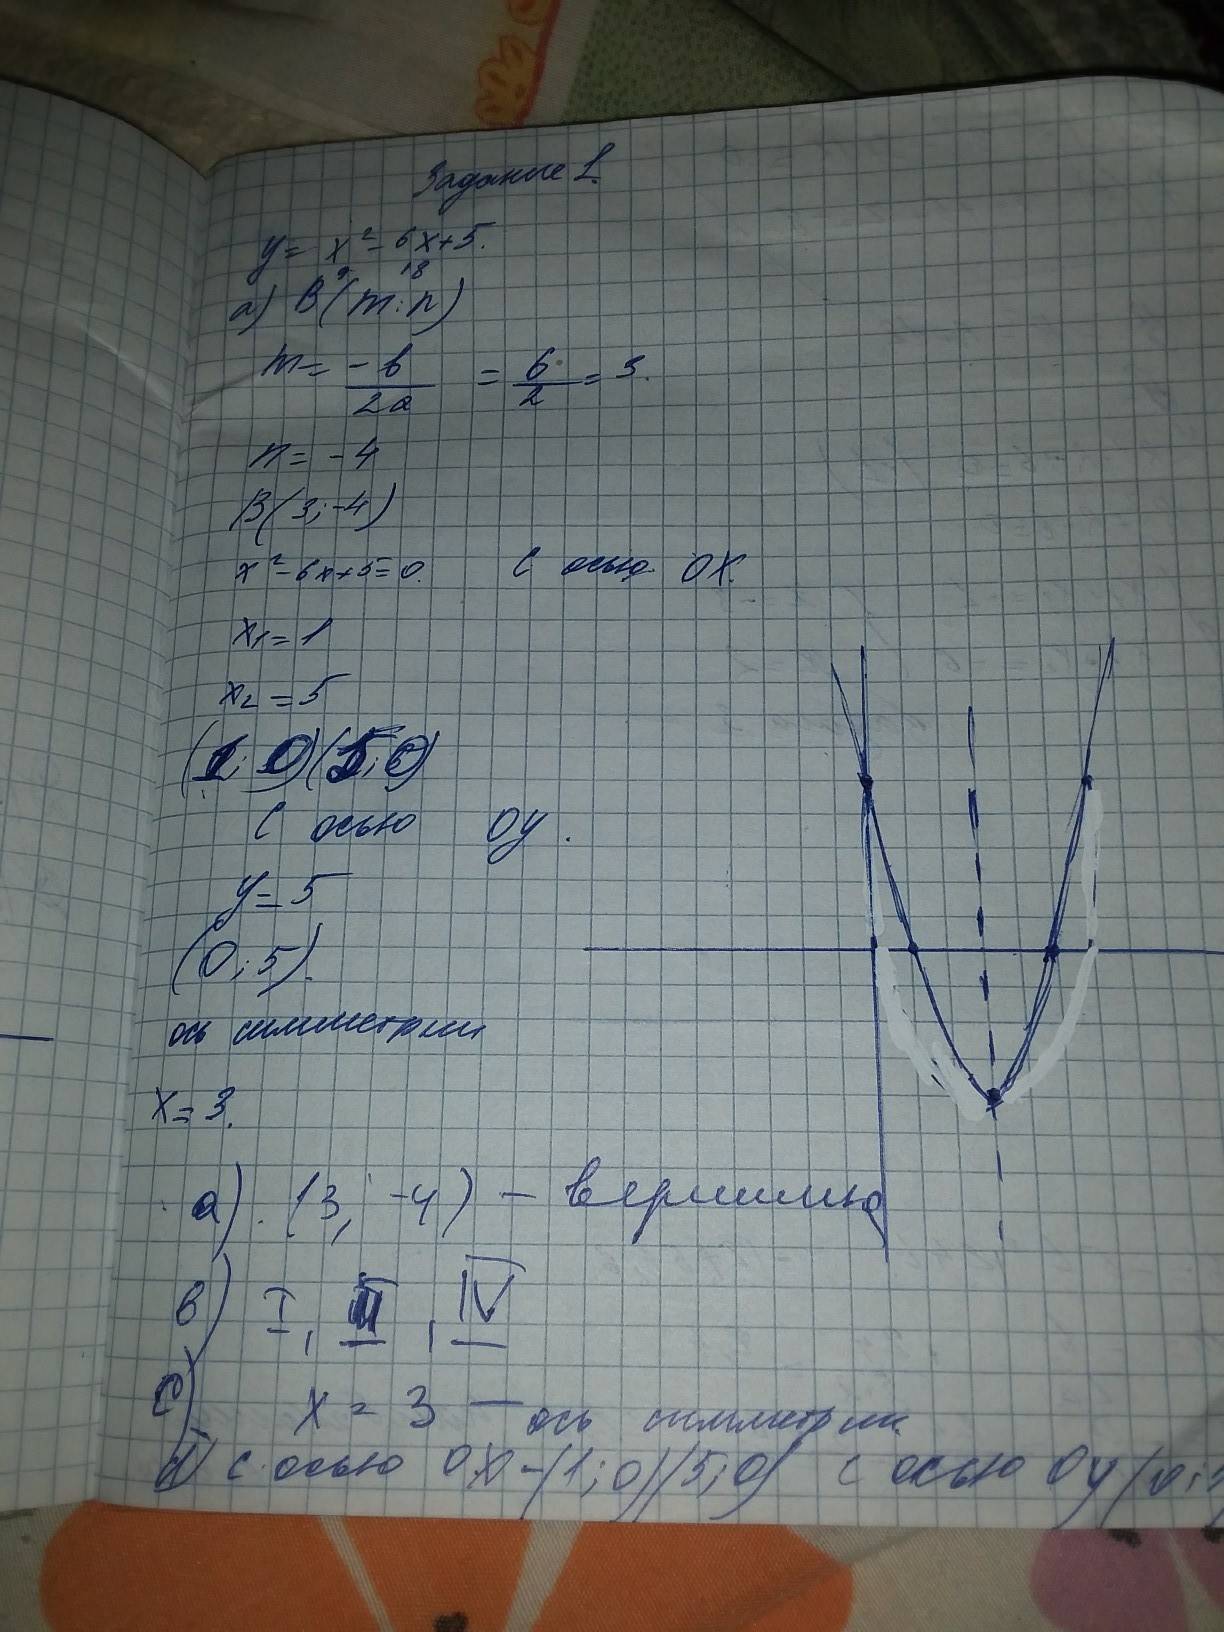 Задание 1.
y = x² - 6x + 5.
9 18
а) B(m; n)
m = -b/2a = 6/2 = 3.
n = -4
B(3; -4)
x² - 6x + 5 = 0. С осью OX.
x₁ = 1
x₂ = 5
(1; 0) (5; 0)
С осью Oy.
y = 5
(0; 5).
ось симметрии
x = 3.
а). (3; -4) - вершина
в) I, II, IV
с) x = 3 - ось симметрии.
д) с осью OX - (1; 0) (5; 0) с осью Oy (0; 5